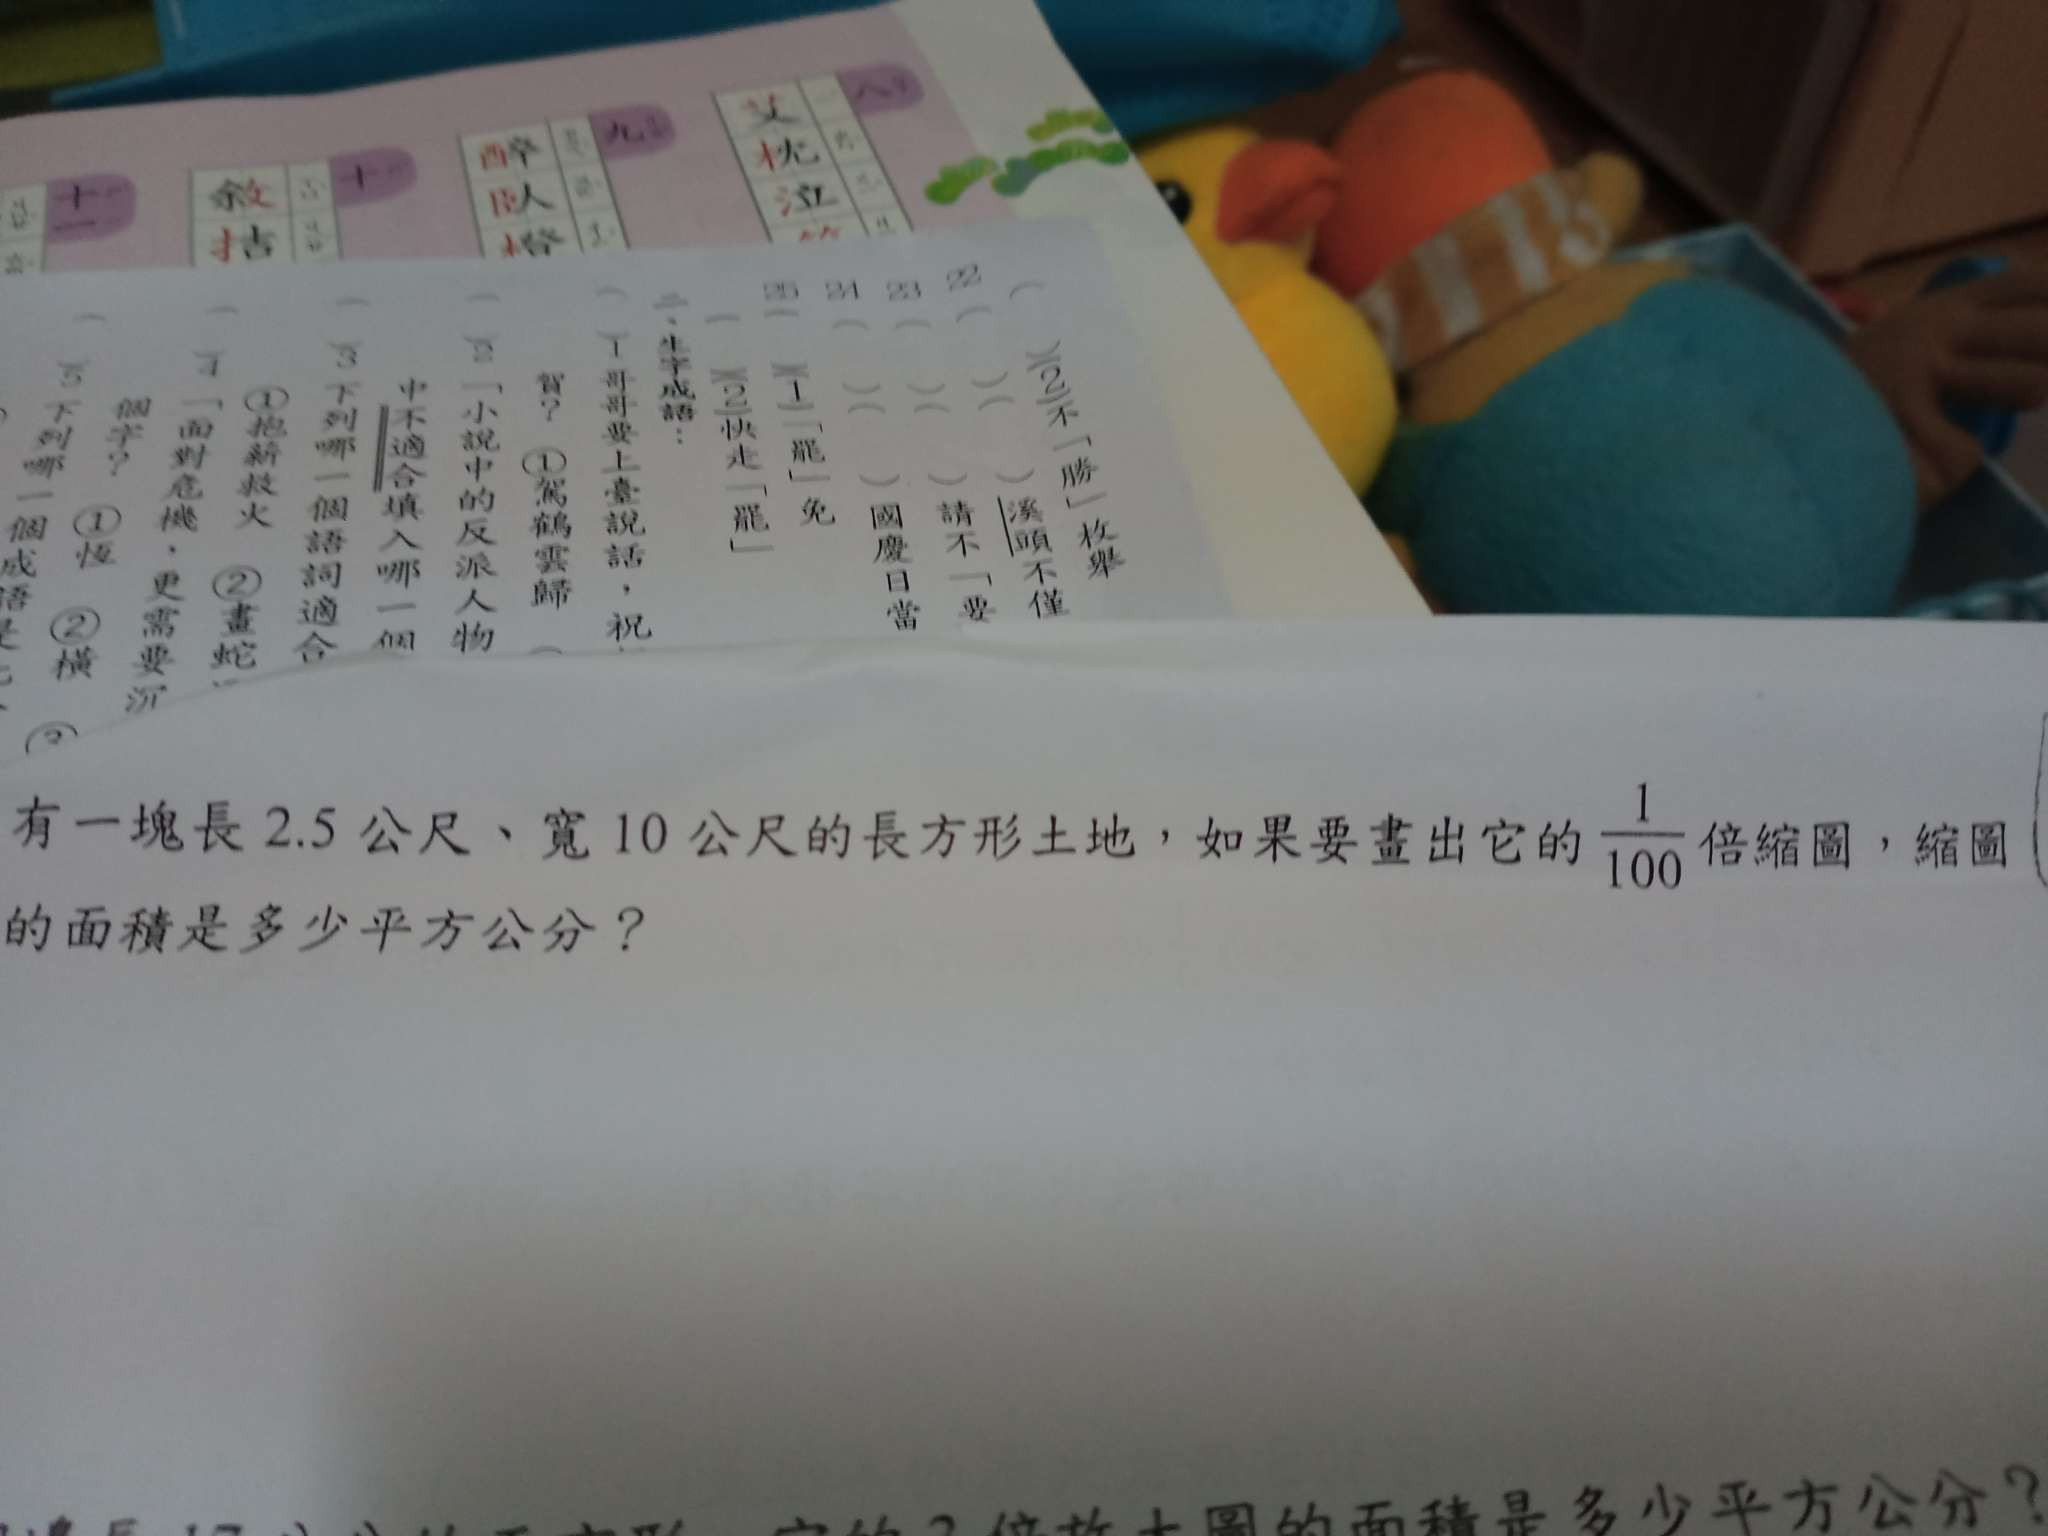 八
艾
枕
泣
九
醉
臥
橙
十
敘
拮
十一
)(2)不「勝」枚舉
22 ( )( )溪頭不僅
23 ( )( )請不「要
24 ( )( )國慶日當
25 ( )(1)「罷」免
( )(2)快走「罷」
二、生字成語：
( )1哥哥要上臺說話，祝
賀？①駕鶴雲歸
( )2「小說中的反派人物
中不適合填入哪一個
( )3下列哪一個語詞適合
①抱薪救火 ②畫蛇
( )4「面對危機，更需要沉
個字？①恆 ②橫
( )5下列哪一個成語是
有一塊長 2.5 公尺、寬 10 公尺的長方形土地，如果要畫出它的 1/100 倍縮圖，縮圖
的面積是多少平方公分？
倍放大圖的面積是多少平方公分？